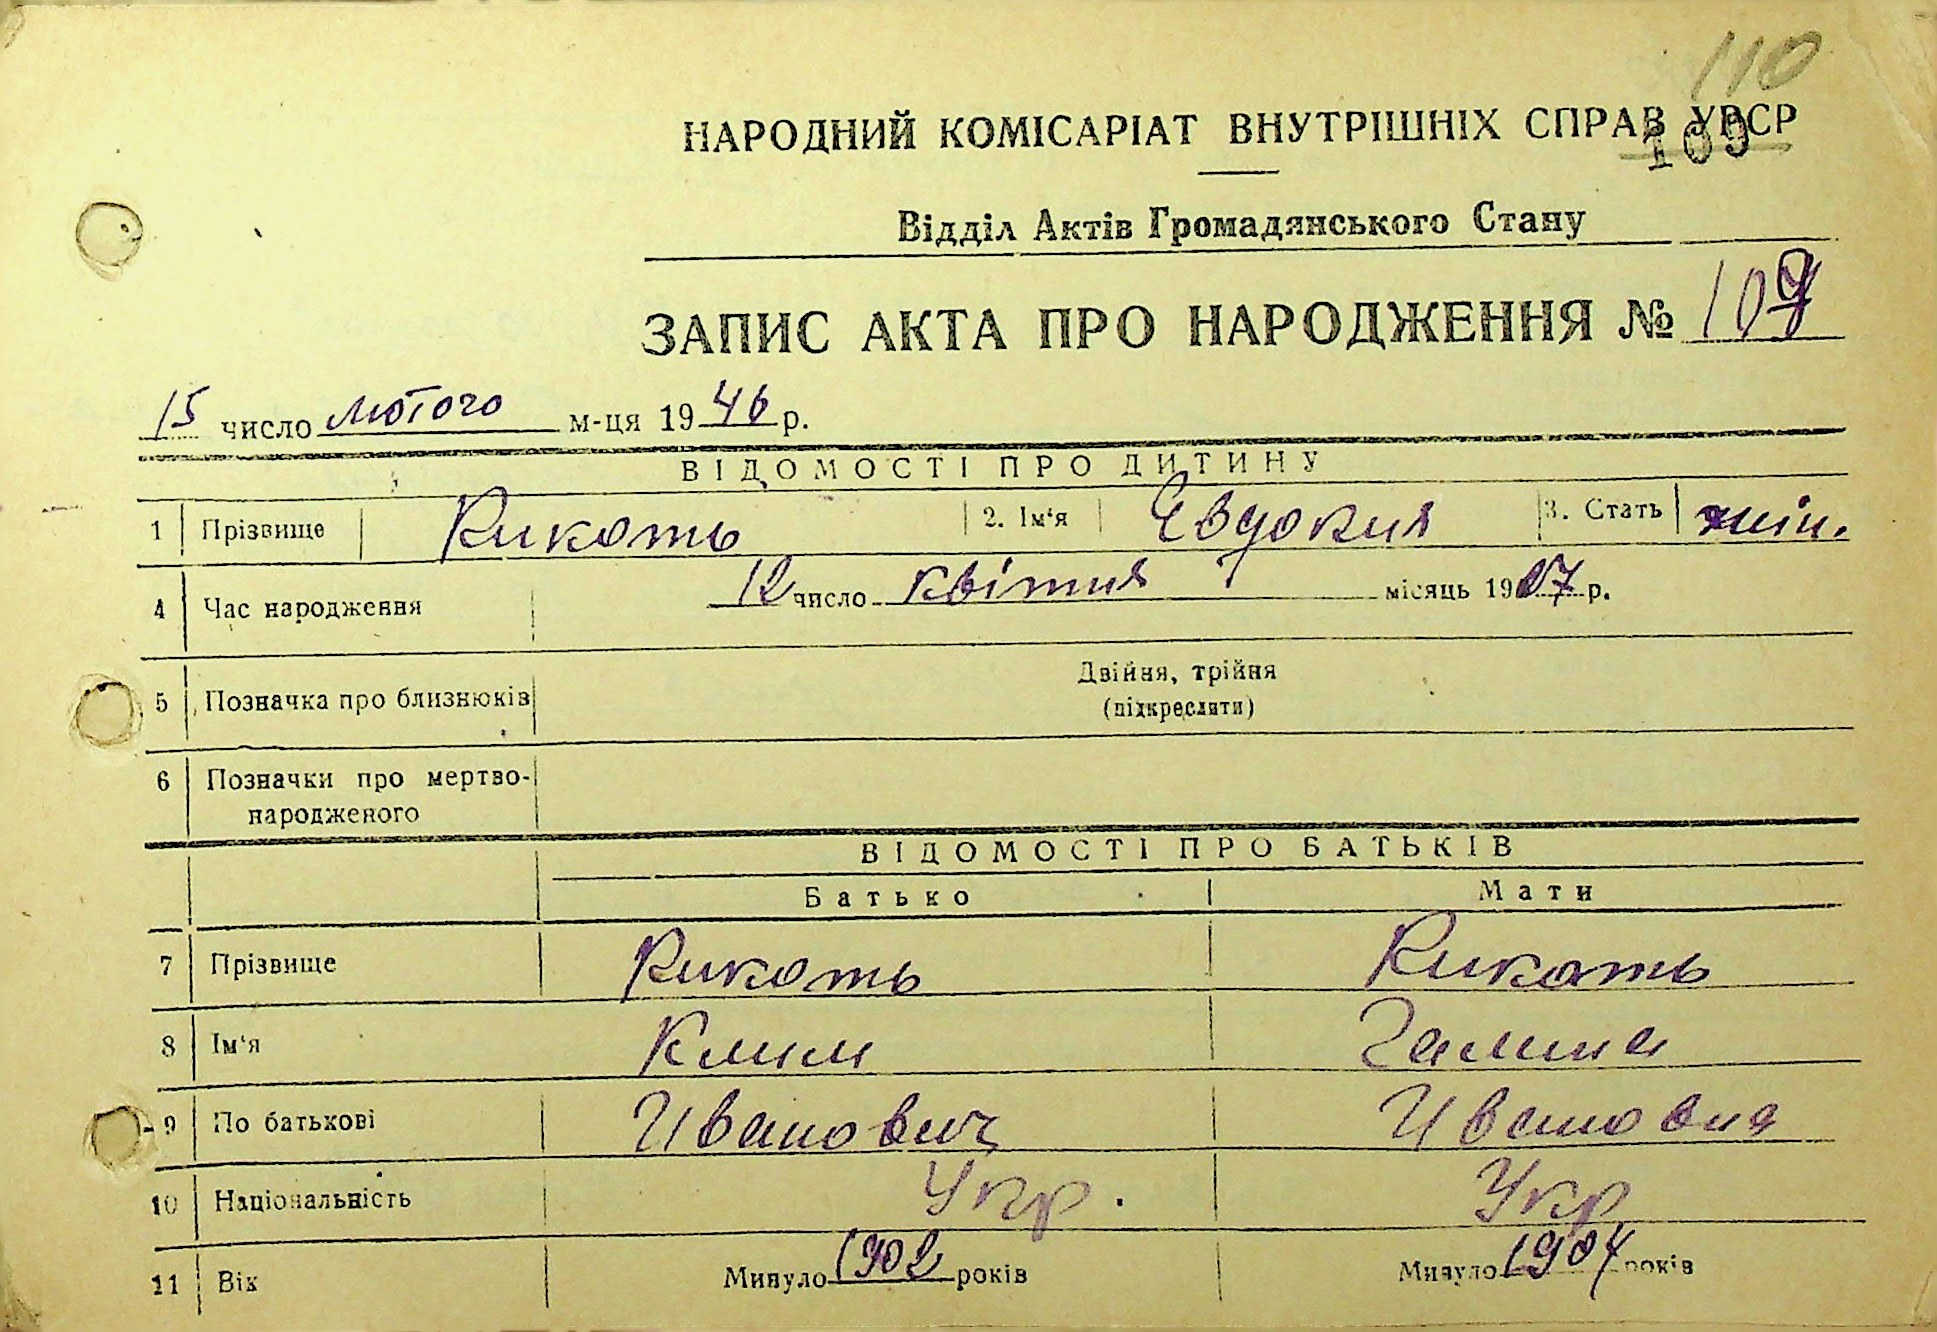 110
НАРОДНИЙ КОМІСАРІАТ ВНУТРІШНІХ СПРАВ УРСР
109
Відділ Актів Громадянського Стану
ЗАПИС АКТА ПРО НАРОДЖЕННЯ № 109
15 число лютого м-ця 1946 р.
ВІДОМОСТІ ПРО ДИТИНУ
1 Прізвище Кикоть 2. Ім‘я Євдокия 3. Стать жін.
4 Час народження 12 число квітня місяць 1927 р.
5 Позначка про близнюків Двійня, трійня
(підкреслити)
6 Позначки про мертво-
народженого
ВІДОМОСТІ ПРО БАТЬКІВ
Батько Мати
7 Прізвище Кикоть Кикоть
8 Ім‘я Клим Галина
9 По батькові Иванович Ивановна
10 Національність Укр. Укр
11 Вік Минуло 1902 років Минуло 1904 років